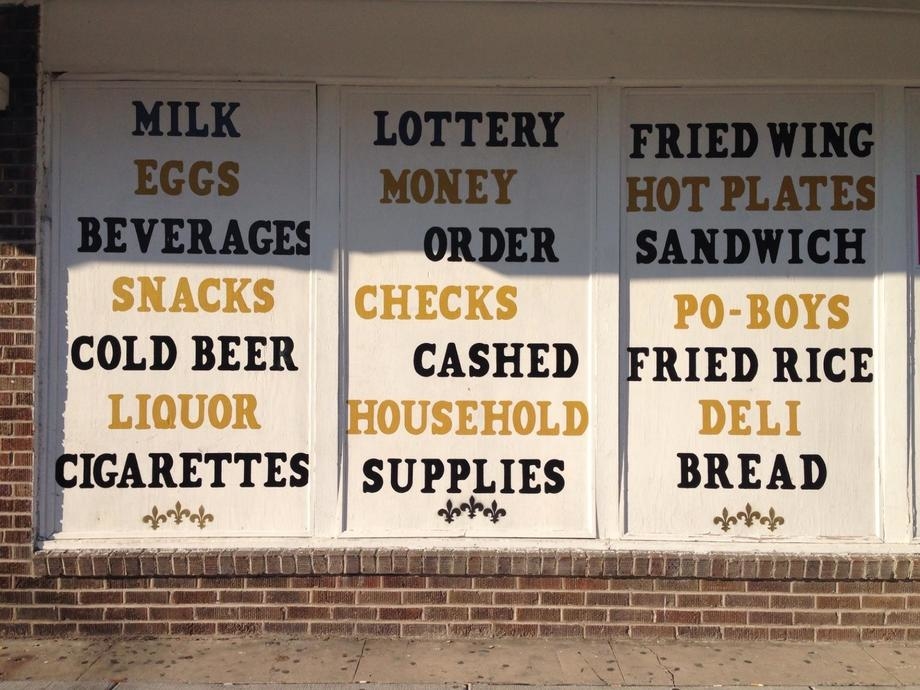 MILK
EGGS
BEVERAGES
SNACKS
COLD BEER
LIQUOR
CIGARETTES
LOTTERY
MONEY
ORDER
CHECKS
CASHED
HOUSEHOLD
SUPPLIES
FRIED WING
HOT PLATES
SANDWICH
PO-BOYS
FRIED RICE
DELI
BREAD